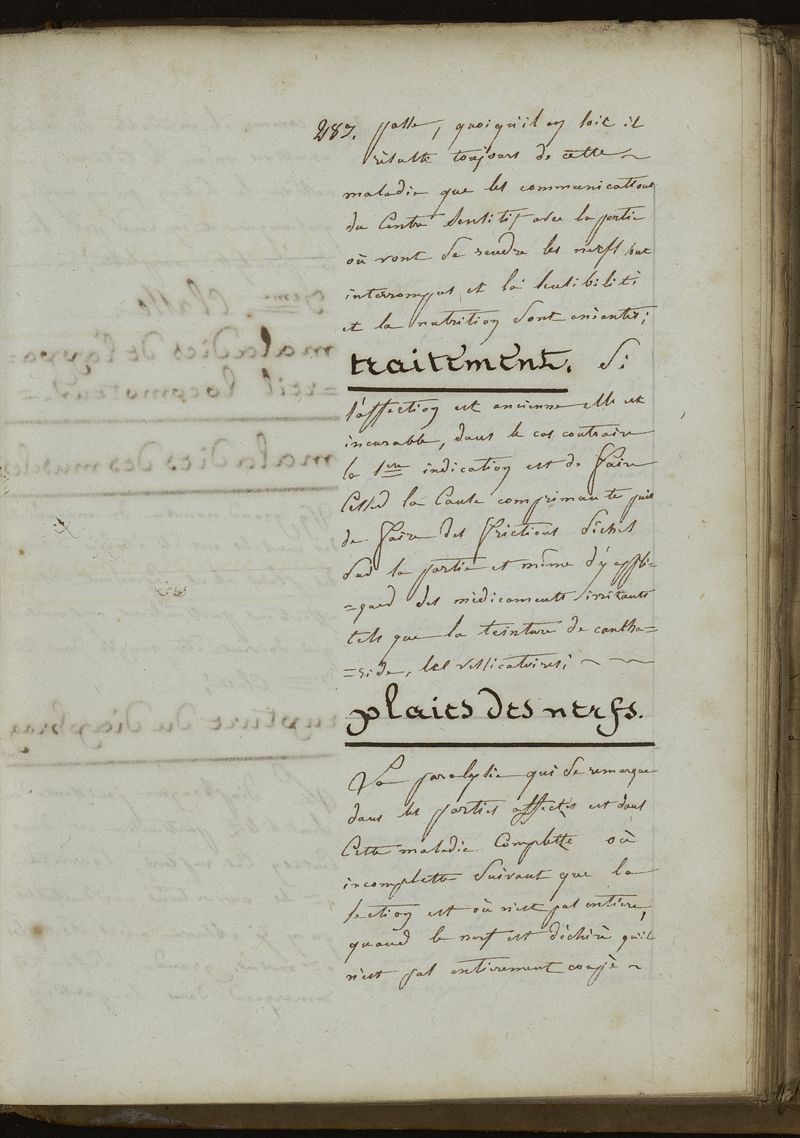 287. passe, quoiqu'il en soit il
résulte toujours de cette ~
maladie que les communications
du Centre Sensitif avec la partie
où vont se rendre les nerfs sont
interrompus et la sensibilité
et la nutrition sont anéantis;
traitement. Si
l'affection est ancienne elle est
incurable, dans le cas contraire
la 1ere indication est de faire
Cesser la Cause comprimante puis
de faire des frictions sèches
sur la partie et même d'y appli=
=quer des médicaments irritants
tels que la teinture de cantha=
=ride, les vessicatoires; ~ ~
plaies des nerfs.
La paralysie qui se remarque
dans les parties affectés est dans
Cette maladie Complette où
incomplette suivant que la
section est où n'est pas entiere,
quand le nerf est déchiré qu'il
n'est pas entierement coupé ~